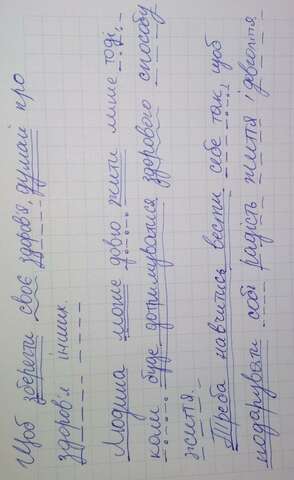 Щоб зберегти своє здоров'я, думай про
здоров'я інших.
Людина може довго жити лише тоді,
коли буде дотримуватися здорового способу
життя.
Треба навчитись вести себе так, щоб
подарувати собі радість життя і довголіття.